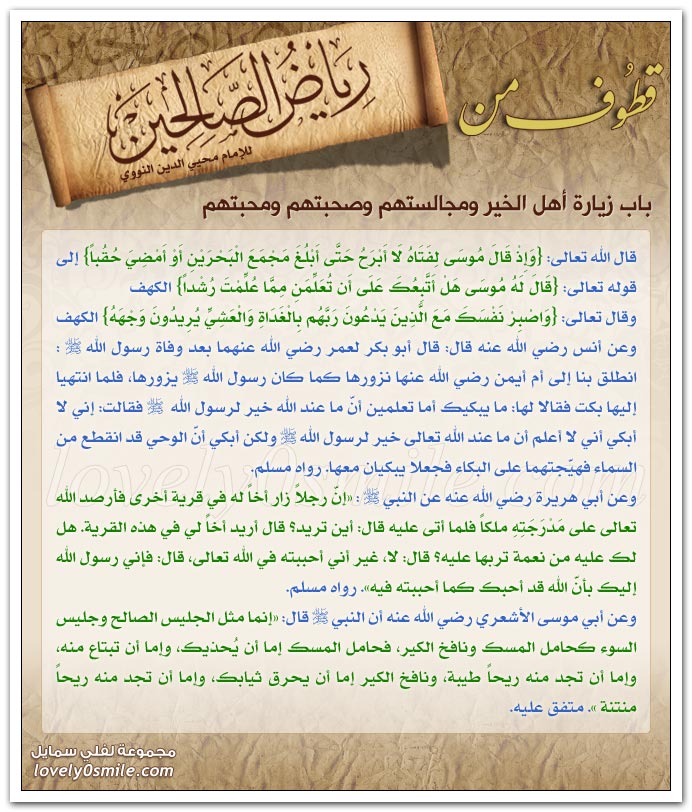 قطوف من
رياض الصالحين
للإمام محيي الدين النووي
باب زيارة أهل الخير ومجالستهم وصحبتهم ومحبتهم
قال الله تعالى: {وَإِذْ قَالَ مُوسَى لِفَتَاهُ لَا أَبْرَحُ حَتَّى أَبْلُغَ مَجْمَعَ الْبَحْرَيْنِ أَوْ أَمْضِيَ حُقُباً} إلى
قوله تعالى: {قَالَ لَهُ مُوسَى هَلْ أَتَّبِعُكَ عَلَى أَن تُعَلِّمَنِ مِمَّا عُلِّمْتَ رُشْداً} الكهف
وقال تعالى: {وَاصْبِرْ نَفْسَكَ مَعَ الَّذِينَ يَدْعُونَ رَبَّهُم بِالْغَدَاةِ وَالْعَشِيِّ يُرِيدُونَ وَجْهَهُ} الكهف
وعن أنس رضي الله عنه قال: قال أبو بكر لعمر رضي الله عنهما بعد وفاة رسول الله ﷺ :
انطلق بنا إلى أم أيمن رضي الله عنها نزورها كما كان رسول الله ﷺ يزورها، فلما انتهيا
إليها بكت فقالا لها: ما يبكيك أما تعلمين أنّ ما عند الله خير لرسول الله ﷺ فقالت: إني لا
أبكي أني لا أعلم أن ما عند الله تعالى خير لرسول الله ﷺ ولكن أبكي أنّ الوحي قد انقطع من
السماء فهيّجتهما على البكاء فجعلا يبكيان معها. رواه مسلم.
وعن أبي هريرة رضي الله عنه عن النبي ﷺ : «إنّ رجلاً زار أخاً له في قرية أخرى فأرصد الله
تعالى على مَدْرَجَتِهِ ملكاً فلما أتى عليه قال: أين تريد؟ قال أريد أخاً لي في هذه القرية. هل
لك عليه من نعمة تربها عليه؟ قال: لا، غير أني أحببته في الله تعالى، قال: فإني رسول الله
إليك بأنّ الله قد أحبك كما أحببته فيه». رواه مسلم.
وعن أبي موسى الأشعري رضي الله عنه أن النبي ﷺ قال: «إنما مثل الجليس الصالح وجليس
السوء كحامل المسك ونافخ الكير، فحامل المسك إما أن يُحذيك، وإما أن تبتاع منه،
وإما أن تجد منه ريحاً طيبة، ونافخ الكير إما أن يحرق ثيابك، وإما أن تجد منه ريحاً
منتنة ». متفق عليه.
مجموعة لفلي سمايل
lovely0smile.com